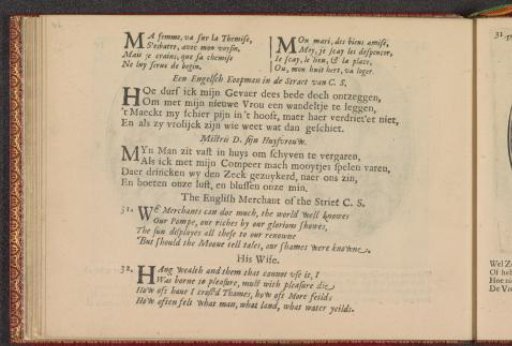 MA femme, va sur la Themise,
S'esbatre, avec mon voysin.
Mais je crains, que sa chemise
Ne luy serve de begin.
MOn mari, des biens amise,
Moy, je scay les despencer,
Je scay, le lieu, & la place,
Ou, mon huit hert, va loger.
Een Engelsch Coopman in de Straet van C. S.
HOe durf ick mijn Gevaer dees bede doch ontzeggen,
Om met mijn nieuwe Vrou een wandeltje te leggen,
't Maeckt my schier pijn in't hooft, maer haer verdriet'et niet,
En als zy vrolijck zijn wie weet wat dan geschiet.
Mistris D. sijn Huysvrouw.
MYn Man zit vast in huys om schyven te vergaren,
Als ick met mijn Compeer mach mooytjes spelen varen,
Daer drincken wy den Zeck gezuykerd, naer ons zin,
En boeten onze lust, en blussen onze min.
The English Merchant of the Striet C. S.
31. WE Merchants can doe much, the world well knowes
Our Pompe, our riches by our glorious showes,
The sun desployes all these to our renowne
But should the Moone tell tales, our shames were knowne,
His Wife.
32. HAng wealth and them that cannot use it, I
Was borne to pleasure, must with pleasure die
How oft have I cross'd Thames, how oft More feilds
How often felt what man, what land, what water yeilds.
31.
Wel Z
Of hel
Hoe ni
De Vr